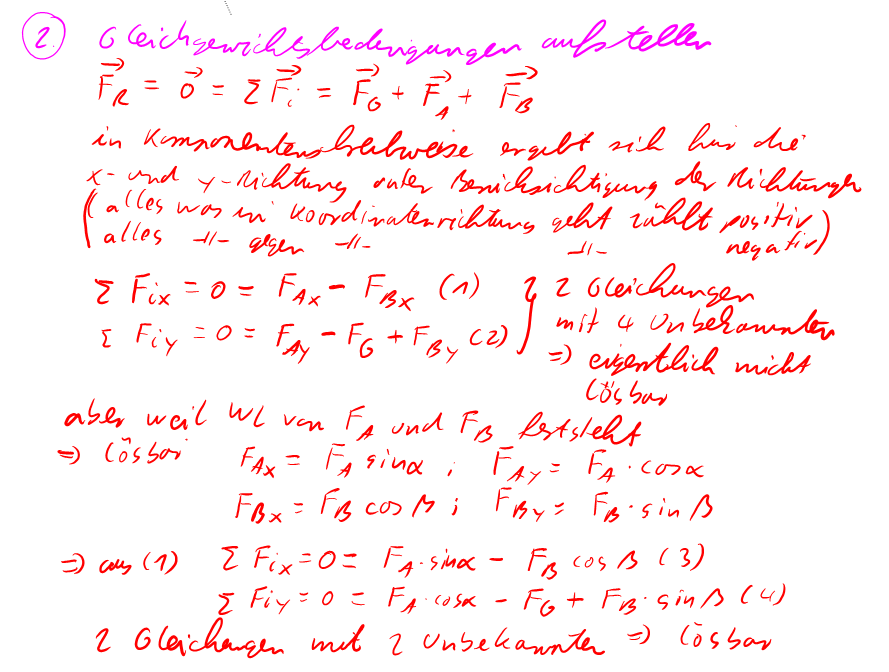 2. Gleichgewichtsbedingungen aufstellen
F⃗_R = 0⃗ = Σ F⃗_i = F⃗_G + F⃗_A + F⃗_B
in Komponentenschreibweise ergibt sich für die
x- und y-Richtung unter Berücksichtigung der Richtungen
(alles was in Koordinatenrichtung geht zählt positiv
alles -||- gegen -||- -||- negativ)
Σ F_ix = 0 = F_Ax - F_Bx (1) } 2 Gleichungen
Σ F_iy = 0 = F_Ay - F_G + F_By (2) mit 4 Unbekannten
=> eigentlich nicht
lösbar
aber weil WL von F_A und F_B feststeht
=> lösbar F_Ax = F_A sinα ; F_Ay = F_A · cosα
F_Bx = F_B cos β ; F_By = F_B · sin β
=> aus (1) Σ F_ix = 0 = F_A · sinα - F_B cos β (3)
Σ F_iy = 0 = F_A · cosα - F_G + F_B · sin β (4)
2 Gleichungen mit 2 Unbekannten => lösbar